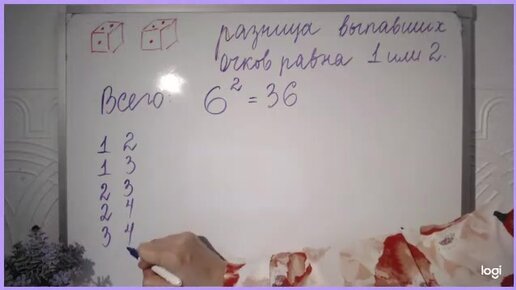 разница выпавших
очков равна 1 или 2.
Всего: 6² = 36
1 2
1 3
2 3
2 4
3 4
logi